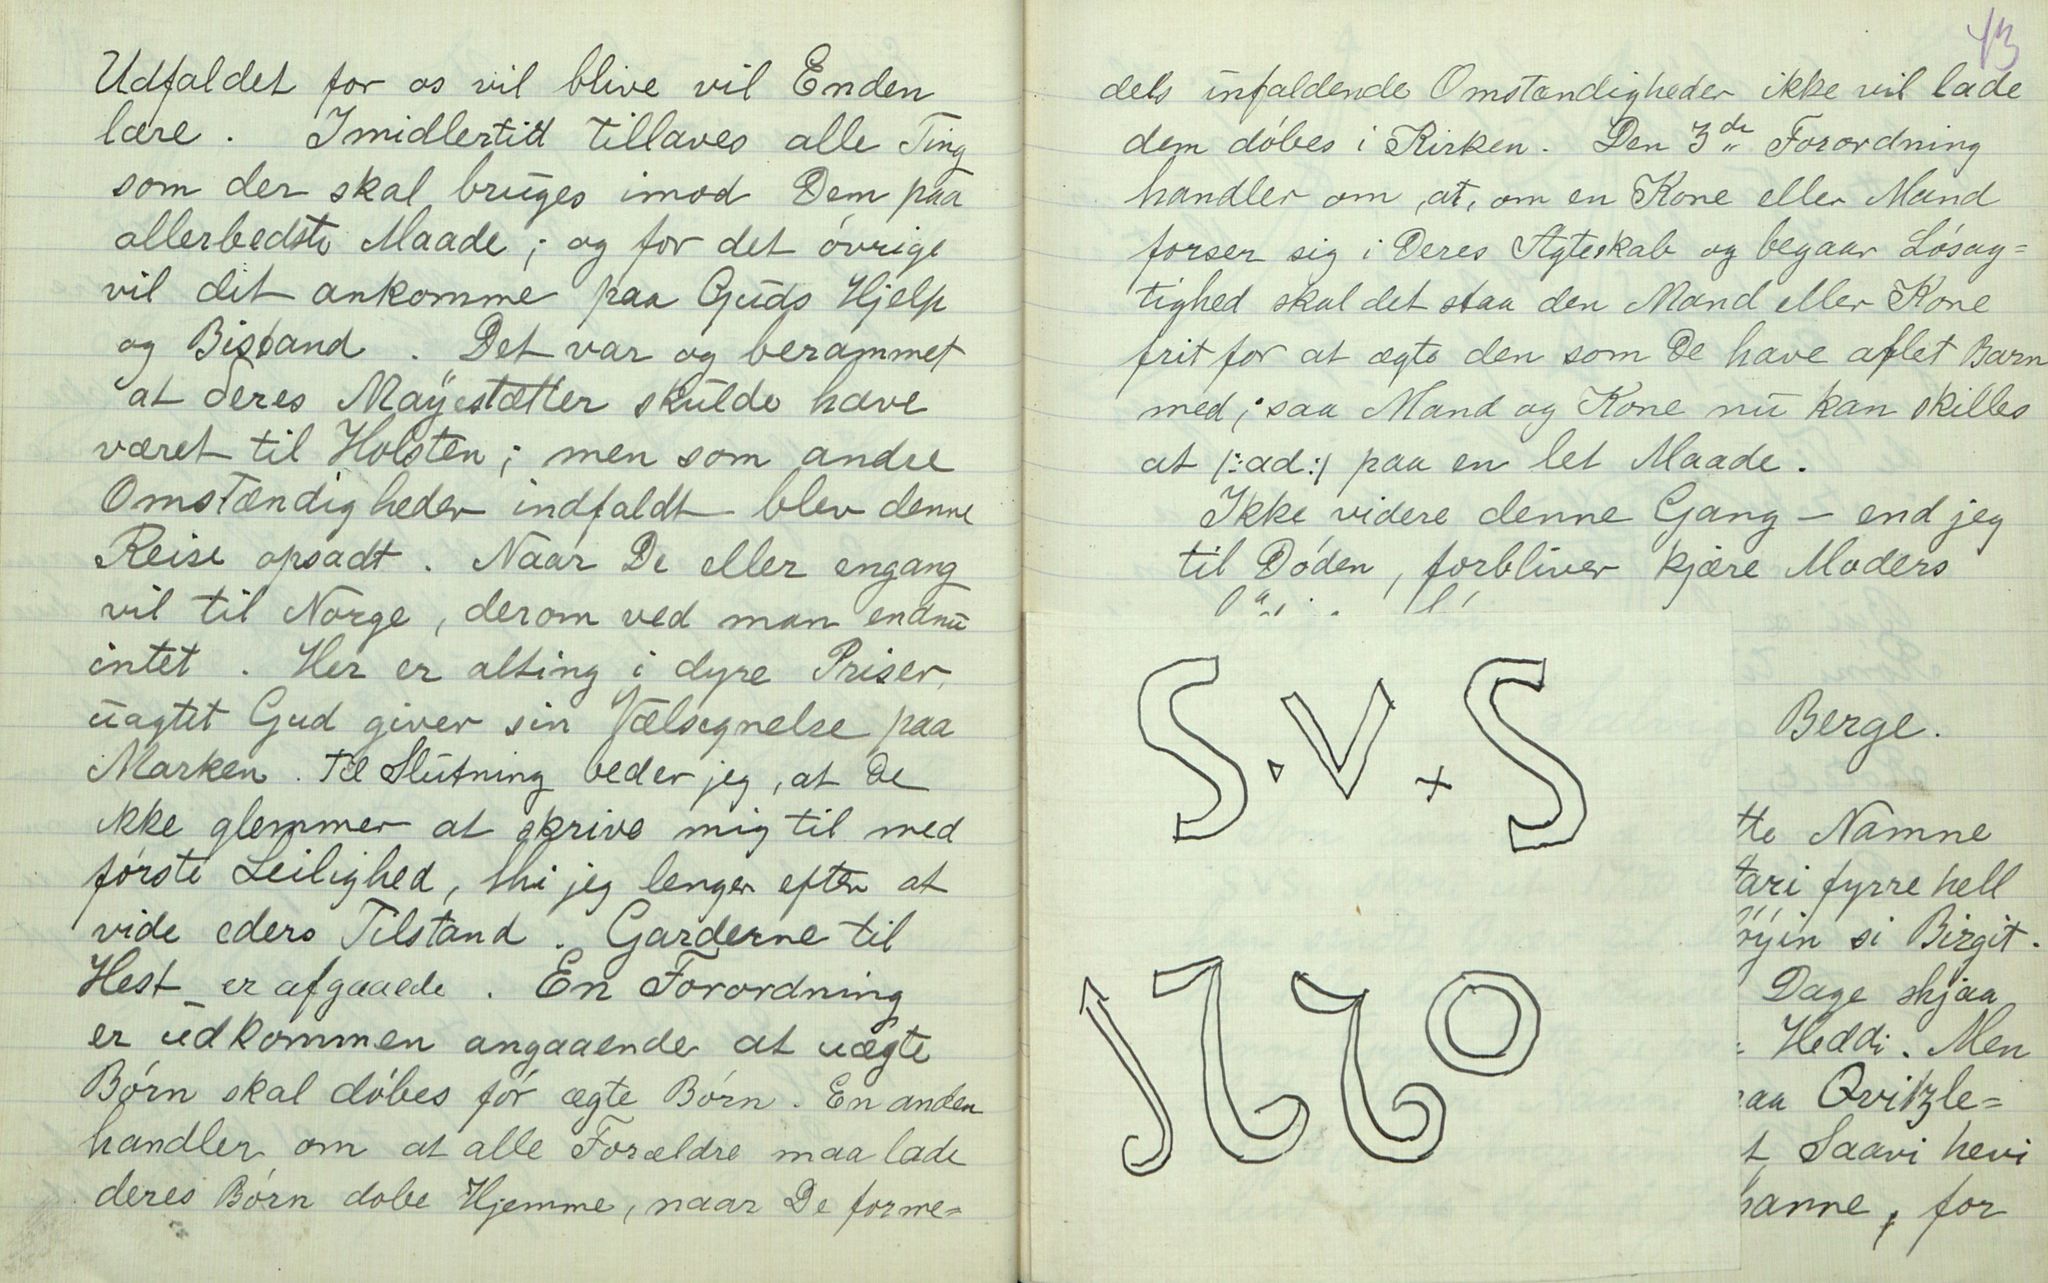 Udfaldet for os vil blive vil Enden
lære. Imidlertid tillaves alle Ting
som der skal bruges imod Dem paa
allerbedste Maade; og for det óvrige
vil det ankomme paa Guds Hjelp
og Bistand. Det var og berammet
at deres Mayestætter skulde have
været til Holsten; men som andre
Omstændigheder indfaldt blev denne
Reise opsadt. Naar De eller engang
vil til Norge, derom ved man endnu
intet. Her er alting i dyre Priser,
uagtet Gud giver sin Vælsegnelse paa
Marken. Til Slutning beder jeg, at De
ikke glemmer at skrive mig til med
fórste Leilighed, thi jeg lenger efter at
vide eders Tilstand. Garderne til
Hest er afgaaede. En Forordning
er udkommen angaaende at uægte
Bórn skal dóbes fór ægte Bórn. En anden
handler om at alle Forældre maa lade
deres Bórn dobe Hjemme, naar De forme=
43
dels infaldende Omstændigheder ikke vil lade
dem dóbes i Kirken. Den 3de Forordning
handler om, at, om en Kone eller Mand
forser sig i Deres Ægteskab og begaar Lósag=
tighed skal det staa den Mand eller Kone
frit for at ægte den som De have aflet Barn
med; saa Mand og Kone nu kan skilles
at /:ad:/ paa en let Maade.
Ikke videre denne Gang - end jeg
til Dóden, forbliver kjære Moders
S.V+S
1660
Berge.
tte Namne
tari fyrre hell
óyin si Birgit.
Dage skjaa
Heddi. Men
aa Qvitzle=
t Saavi hevi
hanne, for